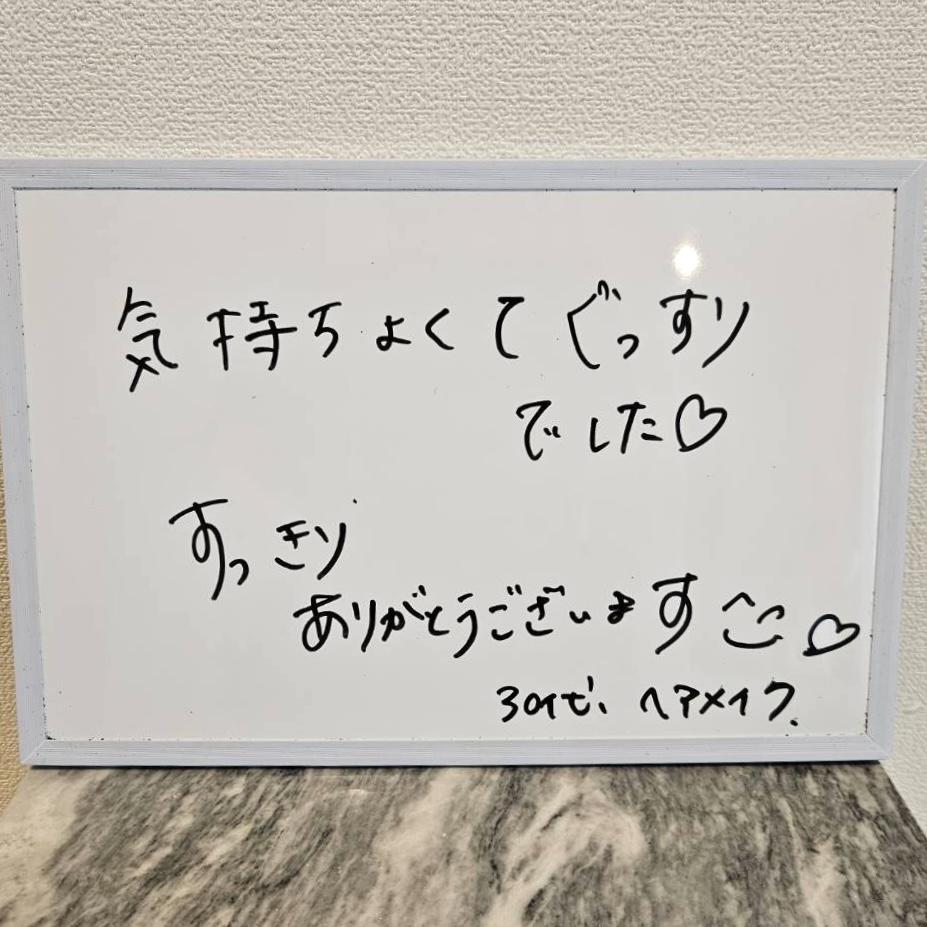 気持ちよくてぐっすり
でした♡
すっきり
ありがとうございます ♡
30代、ヘアメイク.